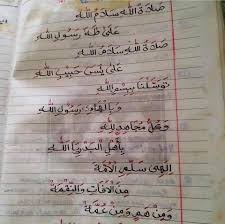 صَلَاةُ اللهِ سَلَامُ اللهِ
عَلَى طٰهَ رَسُوْلِ اللهِ
صَلَاةُ اللهِ سَلَامُ اللهِ
عَلَى يٰسٓ حَبِيْبِ اللهِ
تَوَسَّلْنَا بِبِسْمِ اللهِ
وَبِالْهَادِى رَسُوْلِ اللهِ
وَكُلِّ مُجَاهِدٍ لِلّٰهِ
بِأَهْلِ الْبَدْرِ يَا اللهُ
اِلٰهِى سَلِّمِ الْأُمَّةَ
مِنَ الْاٰفَاتِ وَالنِّقْمَةِ
وَمِنْ هَمٍّ وَمِنْ غُمَّةٍ